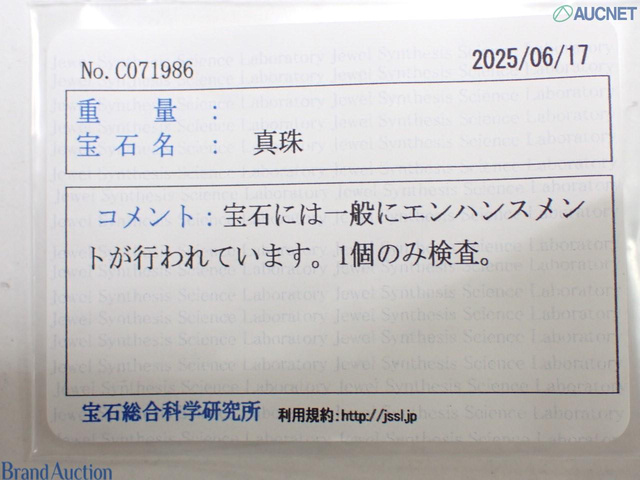 AUCNET
No.C071986
2025/06/17
重量:
宝石名: 真珠
コメント:宝石には一般にエンハンスメン
トが行われています。1個のみ検査。
宝石総合科学研究所 利用規約:http://jssl.jp
Jewel Synthesis Science Laboratory
Brand Auction